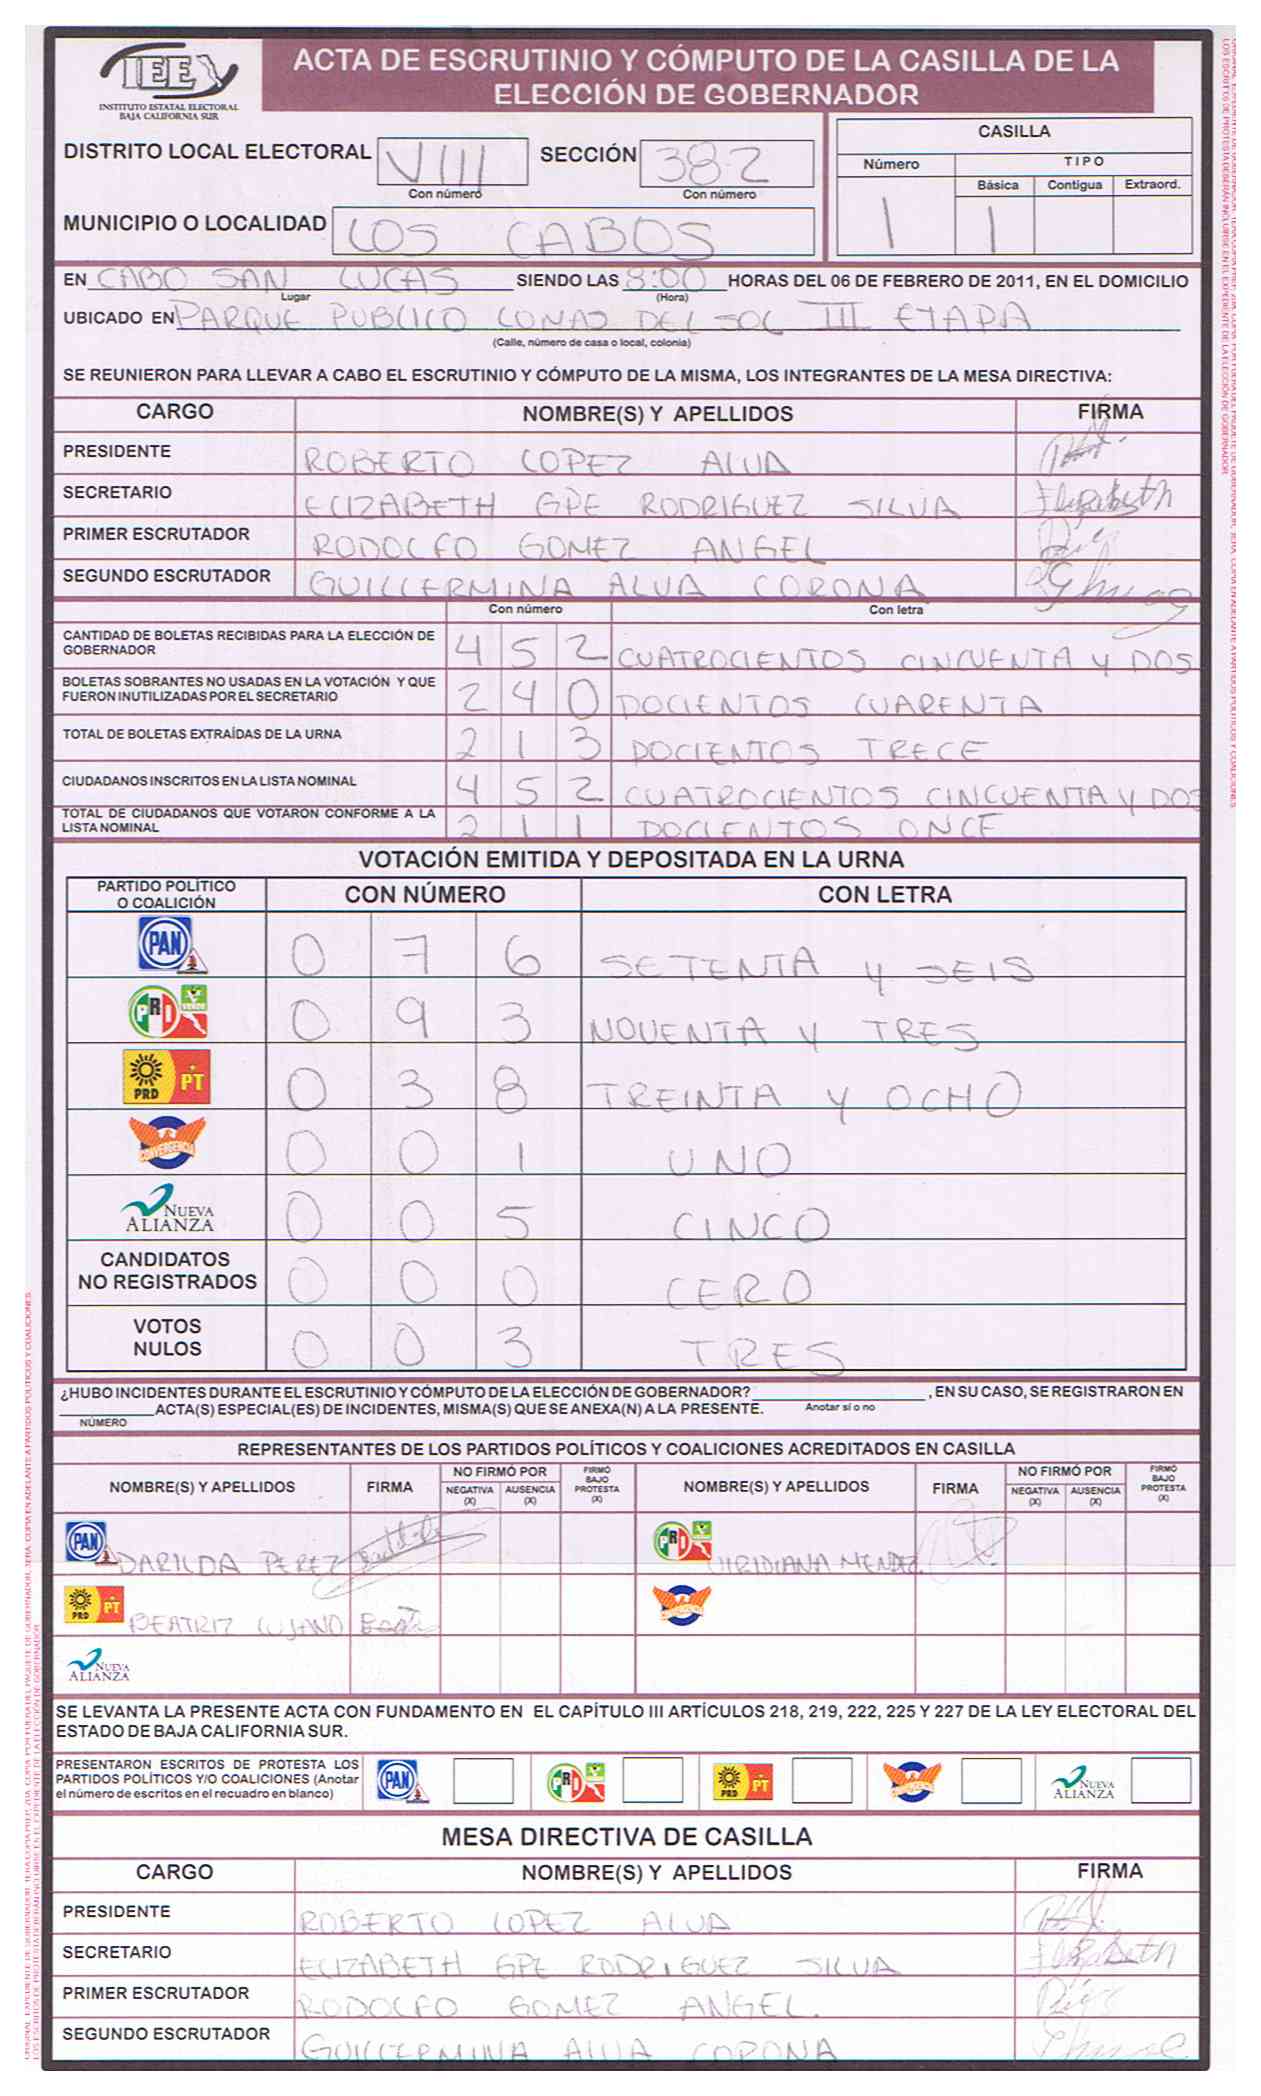 IEE
INSTITUTO ESTATAL ELECTORAL
BAJA CALIFORNIA SUR
ACTA DE ESCRUTINIO Y CÓMPUTO DE LA CASILLA DE LA
ELECCIÓN DE GOBERNADOR
DISTRITO LOCAL ELECTORAL VIII SECCIÓN 382
Con número Con número
MUNICIPIO O LOCALIDAD LOS CABOS
CASILLA
Número TIPO
Básica Contigua Extraord.
1 1
EN CABO SAN LUCAS SIENDO LAS 8:00 HORAS DEL 06 DE FEBRERO DE 2011, EN EL DOMICILIO
Lugar (Hora)
UBICADO EN PARQUE PUBLICO LOMAS DEL SOL III ETAPA
(Calle, número de casa o local, colonia)
SE REUNIERON PARA LLEVAR A CABO EL ESCRUTINIO Y CÓMPUTO DE LA MISMA, LOS INTEGRANTES DE LA MESA DIRECTIVA:
CARGO NOMBRE(S) Y APELLIDOS FIRMA
PRESIDENTE ROBERTO LOPEZ ALVA
SECRETARIO ELIZABETH GPE RODRIGUEZ SILVA Elizabeth
PRIMER ESCRUTADOR RODOLFO GOMEZ ANGEL
SEGUNDO ESCRUTADOR GUILLERMINA ALVA CORONA
Con número Con letra
CANTIDAD DE BOLETAS RECIBIDAS PARA LA ELECCIÓN DE
GOBERNADOR 4 5 2 CUATROCIENTOS CINCUENTA Y DOS
BOLETAS SOBRANTES NO USADAS EN LA VOTACIÓN Y QUE
FUERON INUTILIZADAS POR EL SECRETARIO 2 4 0 DOCIENTOS CUARENTA
TOTAL DE BOLETAS EXTRAÍDAS DE LA URNA 2 1 3 DOCIENTOS TRECE
CIUDADANOS INSCRITOS EN LA LISTA NOMINAL 4 5 2 CUATROCIENTOS CINCUENTA Y DOS
TOTAL DE CIUDADANOS QUE VOTARON CONFORME A LA
LISTA NOMINAL 2 1 1 DOCIENTOS ONCE
VOTACIÓN EMITIDA Y DEPOSITADA EN LA URNA
PARTIDO POLÍTICO
O COALICIÓN CON NÚMERO CON LETRA
PAN 0 7 6 SETENTA Y SEIS
PRI VERDE 0 9 3 NOVENTA Y TRES
PRD PT 0 3 8 TREINTA Y OCHO
CONVERGENCIA 0 0 1 UNO
NUEVA ALIANZA 0 0 5 CINCO
CANDIDATOS
NO REGISTRADOS 0 0 0 CERO
VOTOS
NULOS 0 0 3 TRES
¿HUBO INCIDENTES DURANTE EL ESCRUTINIO Y CÓMPUTO DE LA ELECCIÓN DE GOBERNADOR? , EN SU CASO, SE REGISTRARON EN
ACTA(S) ESPECIAL(ES) DE INCIDENTES, MISMA(S) QUE SE ANEXA(N) A LA PRESENTE. Anotar sí o no
NÚMERO
REPRESENTANTES DE LOS PARTIDOS POLÍTICOS Y COALICIONES ACREDITADOS EN CASILLA
NOMBRE(S) Y APELLIDOS FIRMA NO FIRMÓ POR NEGATIVA (X) AUSENCIA (X) FIRMÓ BAJO PROTESTA (X) NOMBRE(S) Y APELLIDOS FIRMA NO FIRMÓ POR NEGATIVA (X) AUSENCIA (X) FIRMÓ BAJO PROTESTA (X)
PAN DARILDA PEREZ PRI VIRIDIANA MENDEZ
PRD PT BEATRIZ LUJANO CONVERGENCIA
NUEVA ALIANZA
SE LEVANTA LA PRESENTE ACTA CON FUNDAMENTO EN EL CAPÍTULO III ARTÍCULOS 218, 219, 222, 225 Y 227 DE LA LEY ELECTORAL DEL
ESTADO DE BAJA CALIFORNIA SUR.
PRESENTARON ESCRITOS DE PROTESTA LOS
PARTIDOS POLÍTICOS Y/O COALICIONES (Anotar
el número de escritos en el recuadro en blanco)
PAN PRI PRD PT CONVERGENCIA NUEVA ALIANZA
MESA DIRECTIVA DE CASILLA
CARGO NOMBRE(S) Y APELLIDOS FIRMA
PRESIDENTE ROBERTO LOPEZ ALVA
SECRETARIO ELIZABETH GPE RODRIGUEZ SILVA Elizabeth
PRIMER ESCRUTADOR RODOLFO GOMEZ ANGEL.
SEGUNDO ESCRUTADOR GUILLERMINA ALVA CORONA